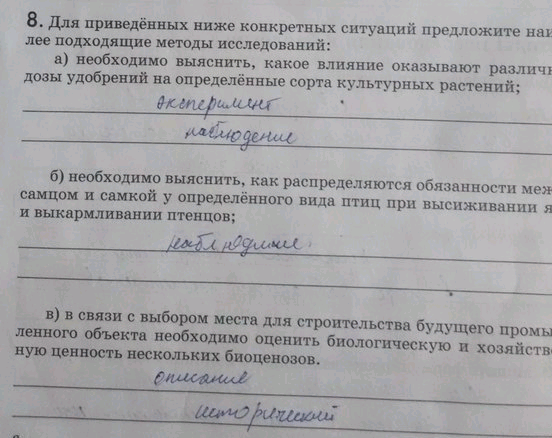 8. Для приведённых ниже конкретных ситуаций предложите наи
лее подходящие методы исследований:
а) необходимо выяснить, какое влияние оказывают различн
дозы удобрений на определённые сорта культурных растений;
эксперимент
наблюдение
б) необходимо выяснить, как распределяются обязанности меж
самцом и самкой у определённого вида птиц при высиживании я
и выкармливании птенцов;
наблюдение
в) в связи с выбором места для строительства будущего промы
ленного объекта необходимо оценить биологическую и хозяйстве
ную ценность нескольких биоценозов.
описание
исторический